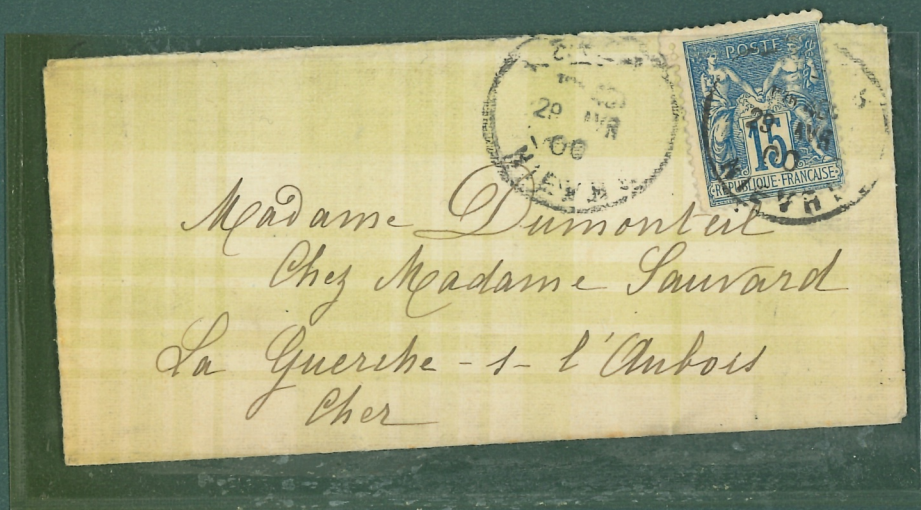 POSTE
29
AVR
00
NIEVRE
29
15
REPUBLIQUE-FRANCAISE
Madame Dumonteil
Chez Madame Sauvard
La Guerche-s-l'Aubois
Cher